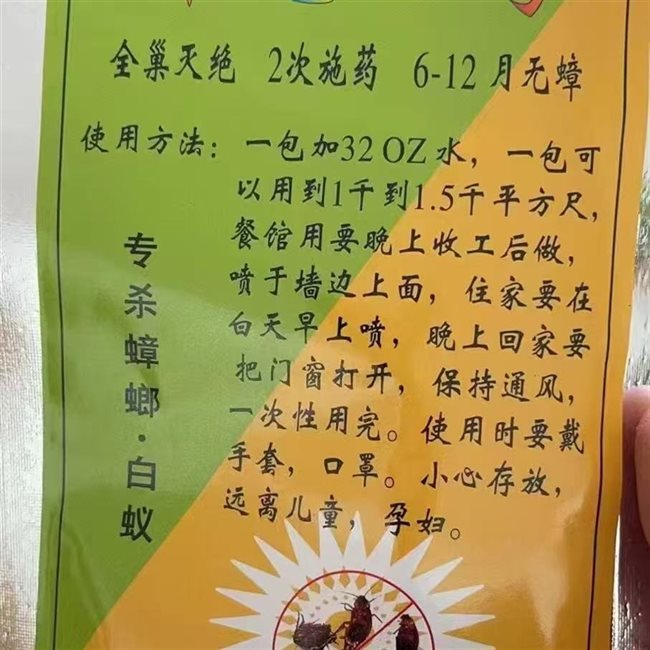 全巢灭绝 2次施药 6-12月无蟑
使用方法：一包加32 OZ水，一包可
以用到1千到1.5千平方尺，
餐馆用要晚上收工后做，
喷于墙边上面，住家要在
白天早上喷，晚上回家要
把门窗打开，保持通风，
一次性用完。使用时要戴
手套，口罩。小心存放，
远离儿童，孕妇。
专杀蟑螂·白蚁